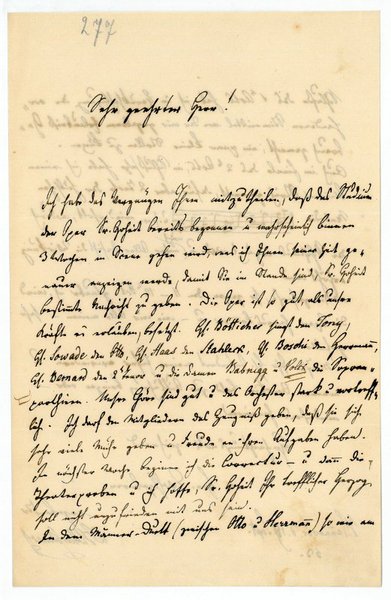 277
Sehr geehrter Herr!
Ich habe das Vergnügen Ihnen mitzutheilen, daß das Studium
der Oper Sr. Hoheit bereits begonnen u wahrscheinlich binnen
3 Wochen in Scene gehen wird, was ich Ihnen seiner Zeit ge-
nauer anzeigen werde, damit Sie im Stande sind, Sr. Hoheit
bestimmte Nachricht zu geben. Die Oper ist so gut, als unsre
Kräfte es erlauben, besetzt. H. Bötticher singt den Tony,
H. Sowade den Otto, H. Haas den Stahleck, H. Bosch den Herrmann,
H. Bernard den und die Damen Babnigg u Voltz die Sopran-
parthieen. Unsre Chöre sind gut u das Orchester stark u vortreff-
lich. Ich darf den Mitgliedern das Zeugniß geben, daß sie sich
sehr viele Mühe geben u Freude an ihren Aufgaben haben.
In nächster Woche beginne ich die Correctur- u dann die
Theaterproben u ich hoffe, Sr. Hoheit Ihr trefflicher Herzog
soll nicht unzufrieden mit uns sein.
In dem Männer-Duett (zwischen Otto u Herrmann) so wie am